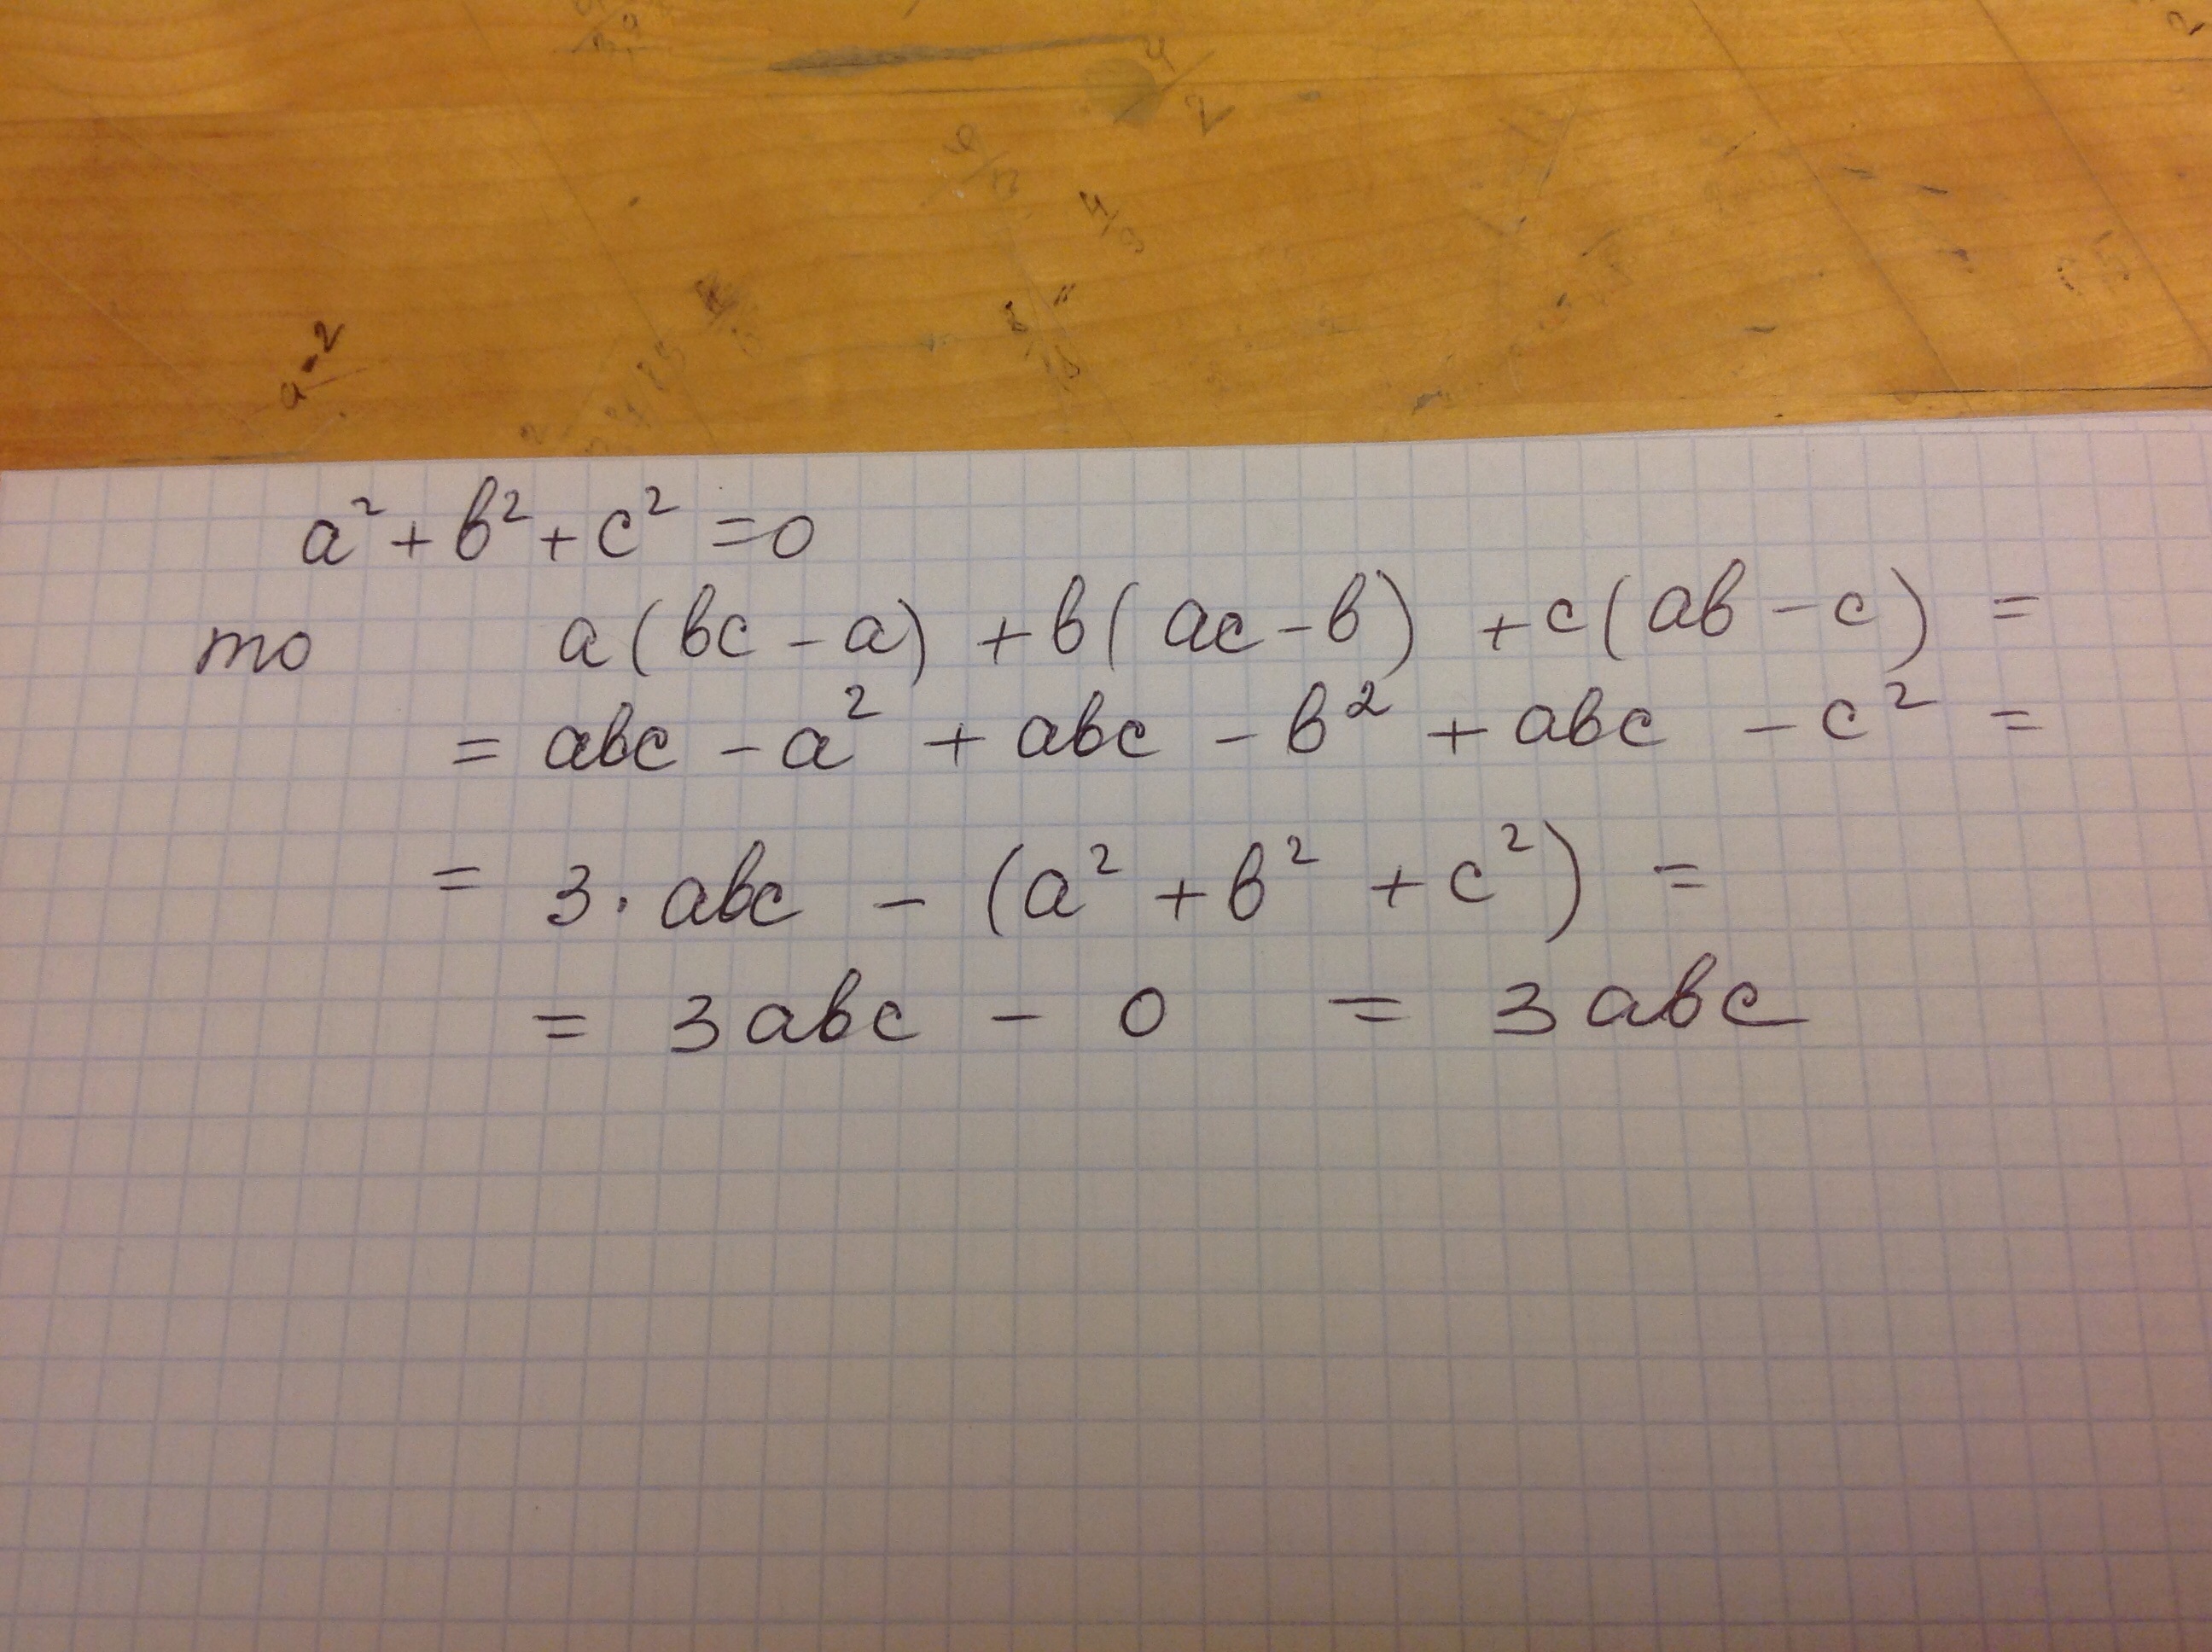 a² + b² + c² = 0
то a(bc - a) + b(ac - b) + c(ab - c) =
= abc - a² + abc - b² + abc - c² =
= 3 · abc - (a² + b² + c²) =
= 3abc - 0 = 3abc